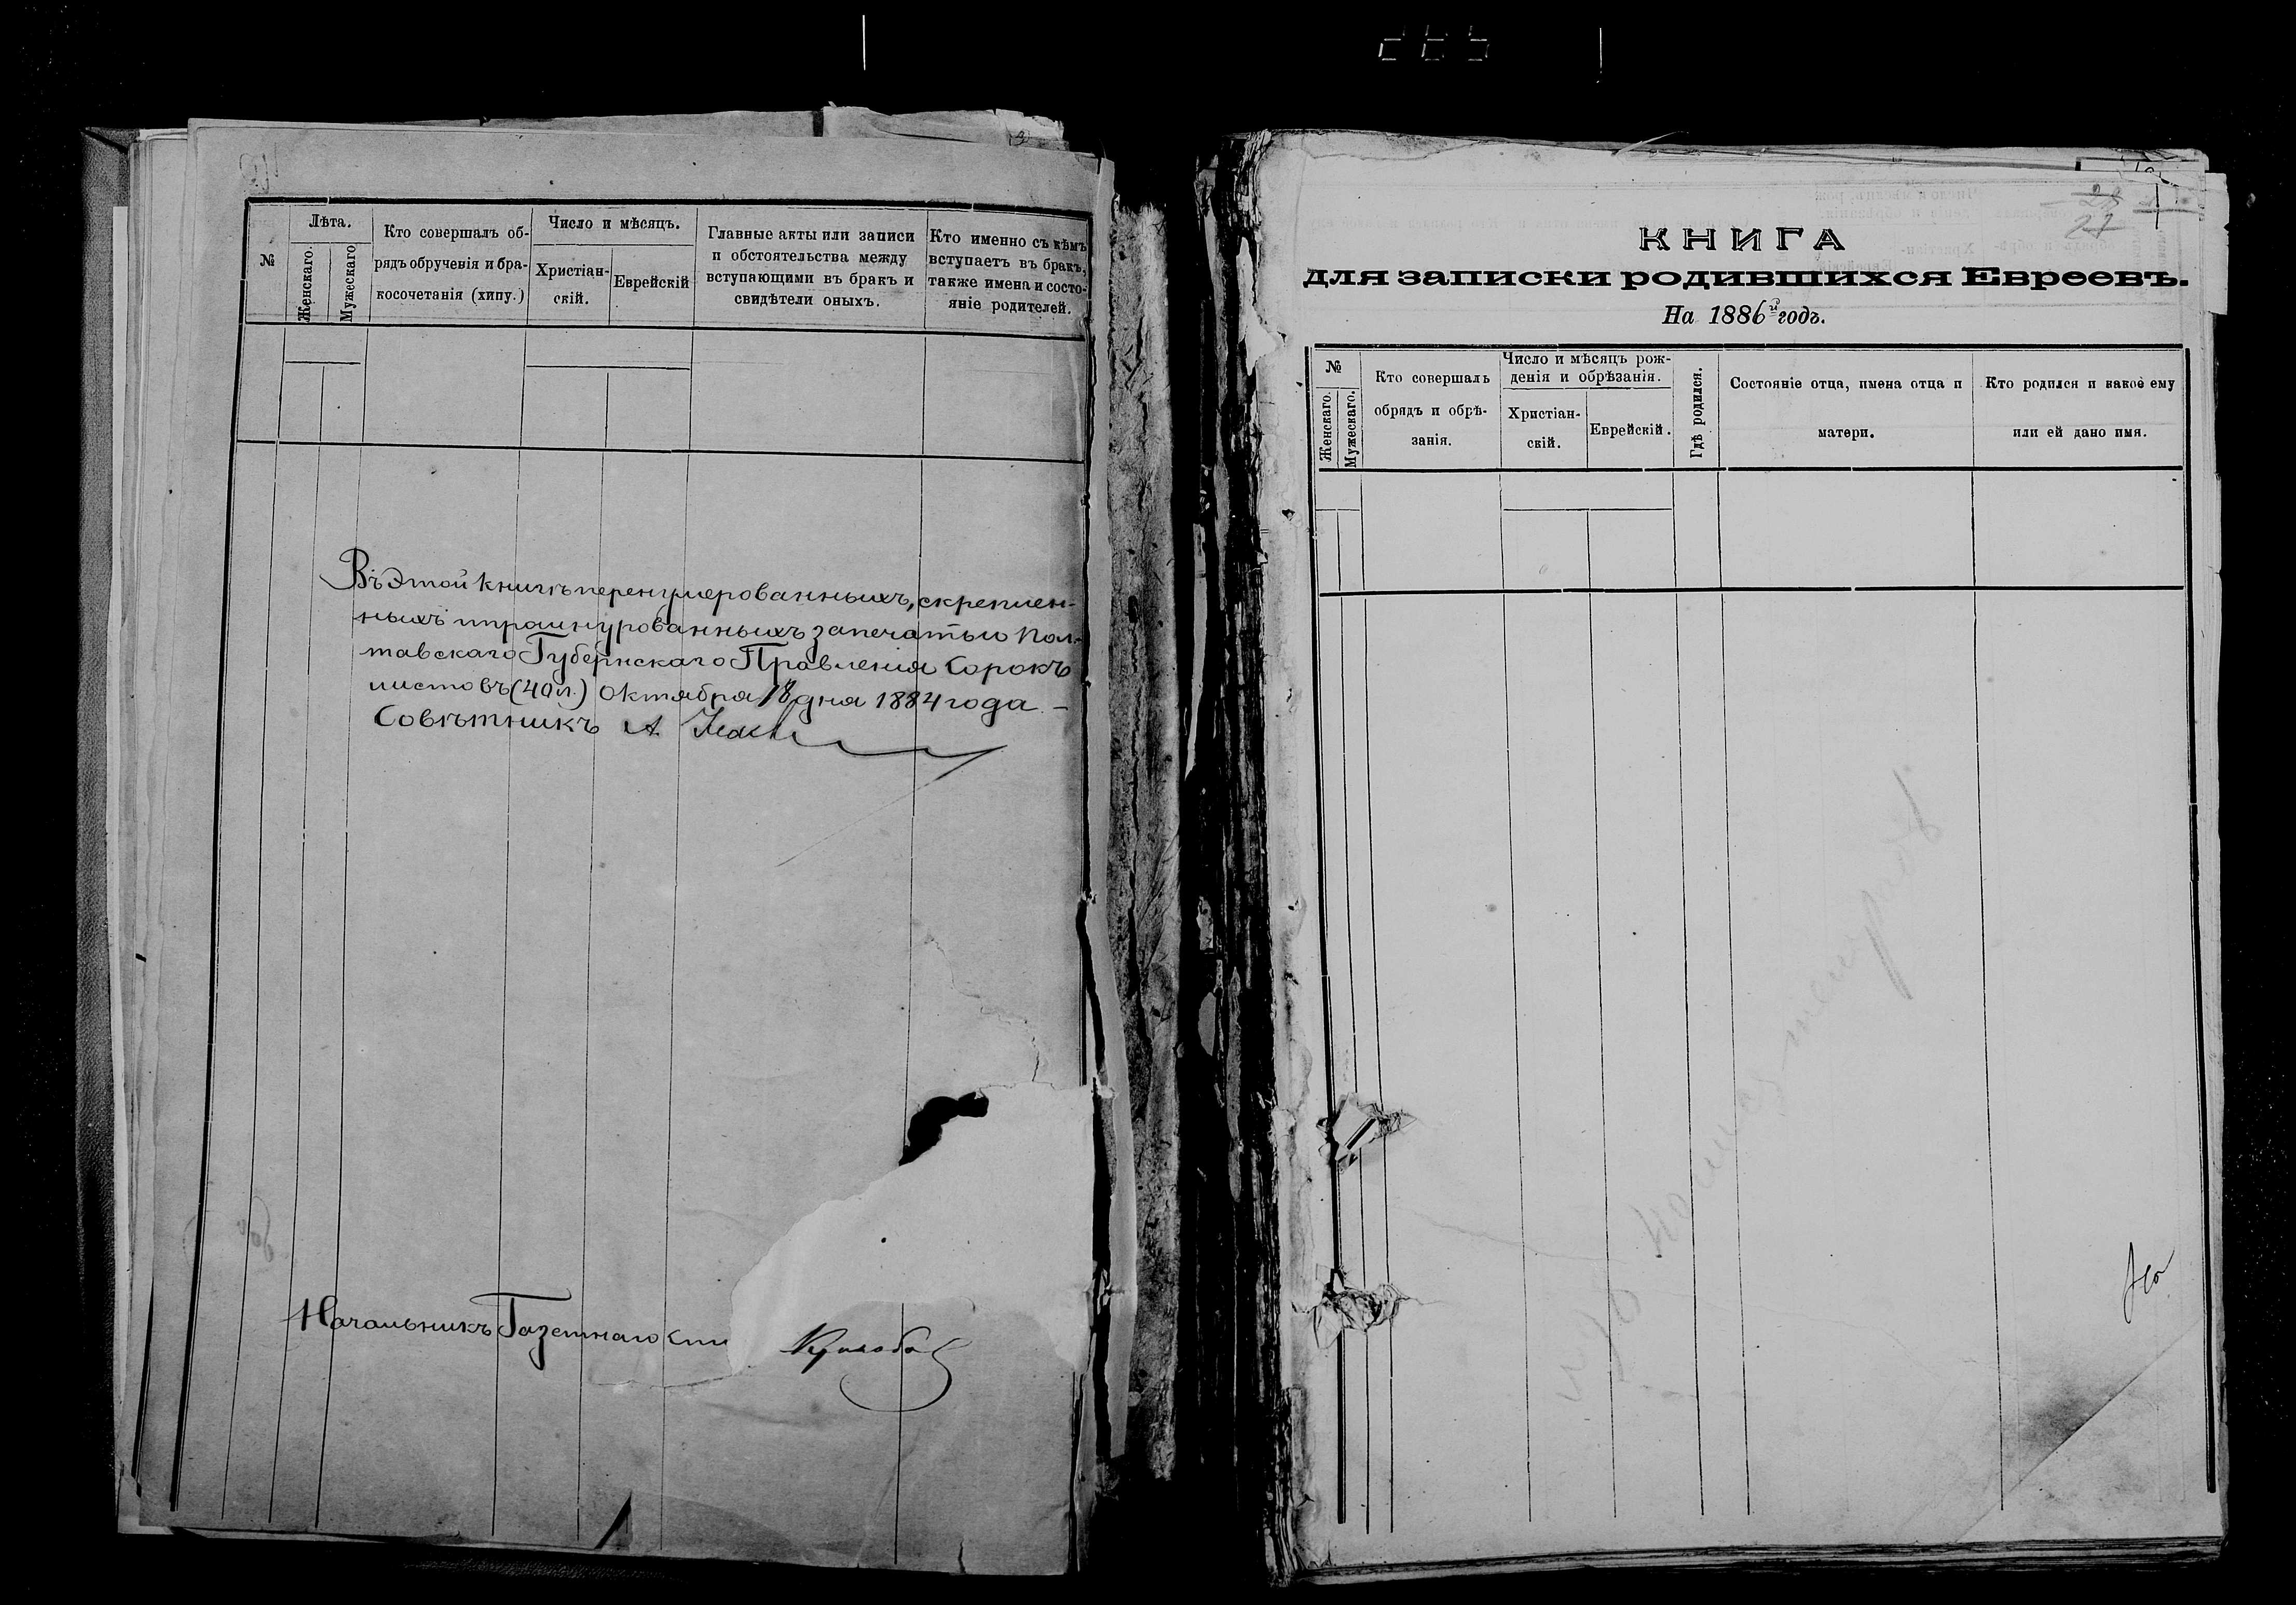 265
№
Лѣта.
Женскаго.
Мужескаго
Кто совершалъ об-
рядъ обрученія и бра-
косочетанія (хипу.)
Число и мѣсяцъ.
Христіан-
скій.
Еврейскій
Главные акты или записи
и обстоятельства между
вступающими въ бракъ и
свидѣтели оныхъ.
Кто именно съ кѣмъ
вступаетъ въ бракъ,
также имена и состо-
яніе родителей.
Въ этой книгѣ перенумерованныхъ, скреплен-
ныхъ и прошнурованныхъ за печатью Пол-
тавскаго Губернскаго Правленія Сорокъ
листовъ (40 л.) Октября 18 дня 1884 года –
Совѣтникъ А.
Начальникъ Газетнаго
27
КНИГА
для записки родившихся Евреевъ.
На 1886й годъ.
№
Женскаго.
Мужескаго.
Кто совершалъ
обрядъ и обрѣ-
занія.
Число и мѣсяцъ рож-
денія и обрѣзанія.
Христіан-
скій.
Еврейскій.
Гдѣ родился.
Состояніе отца, имена отца и
матери.
Кто родился и какое ему
или ей дано имя.